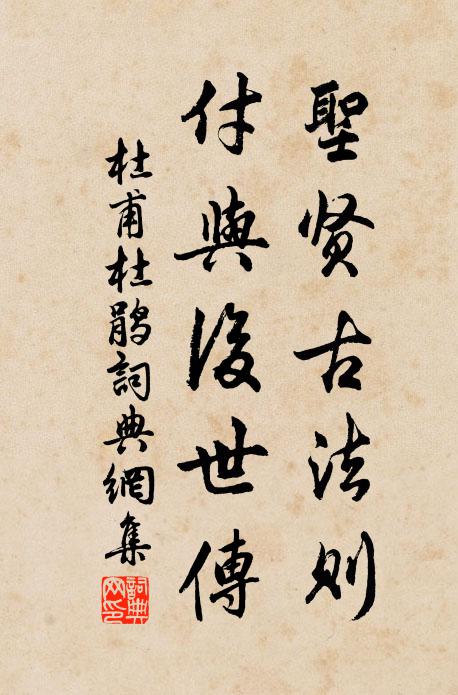 聖贤古法则
付與後世傳
杜甫杜鹃詞典網集
詞典網印